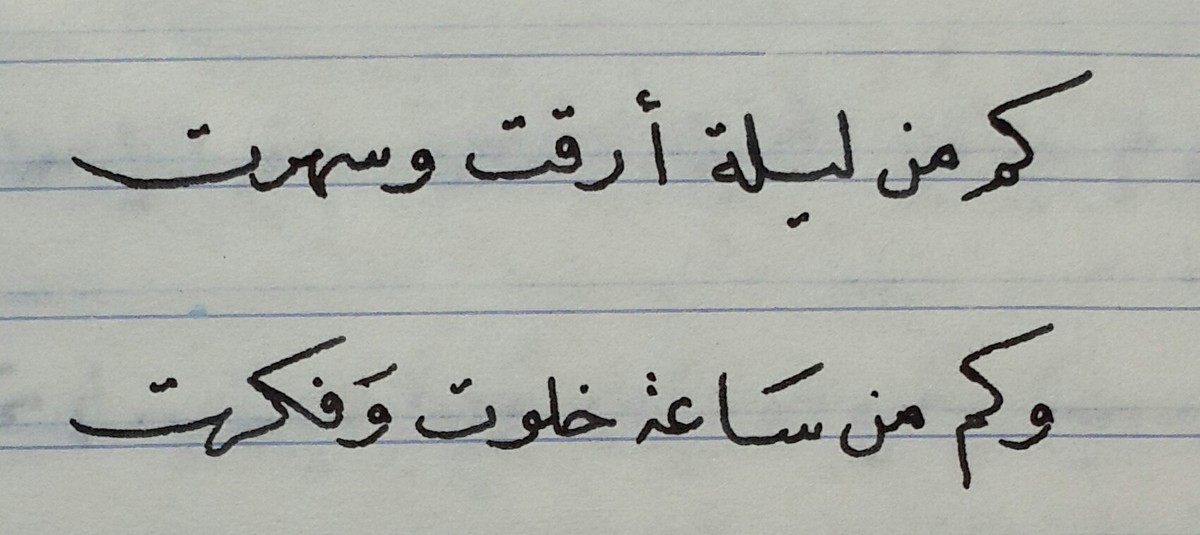 كم من ليلة أرقت وسهرت
وكم من سَاعة خلوت وَفكرت